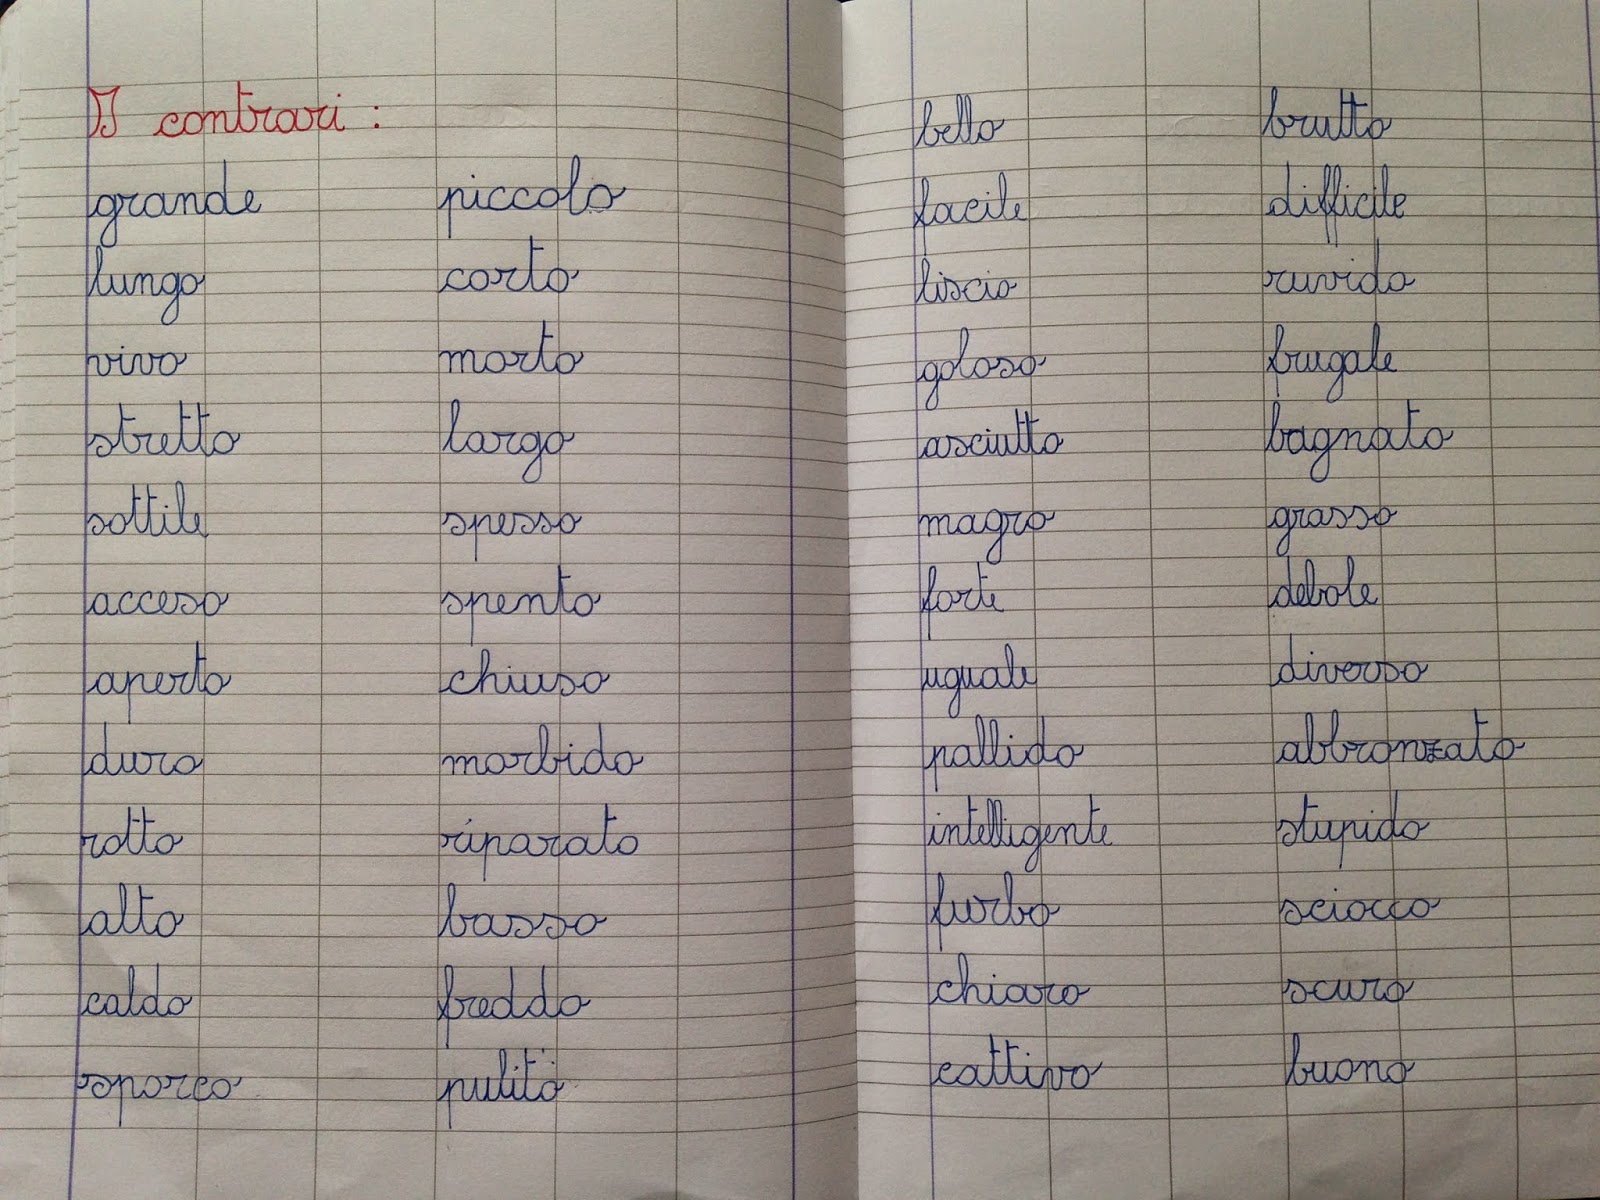 I contrari :
grande piccolo
lungo corto
vivo morto
stretto largo
sottile spesso
acceso spento
aperto chiuso
duro morbido
rotto riparato
alto basso
caldo freddo
sporco pulito
bello brutto
facile difficile
liscio ruvido
goloso frugale
asciutto bagnato
magro grasso
forte debole
uguale diverso
pallido abbronzato
intelligente stupido
furbo sciocco
chiaro scuro
cattivo buono